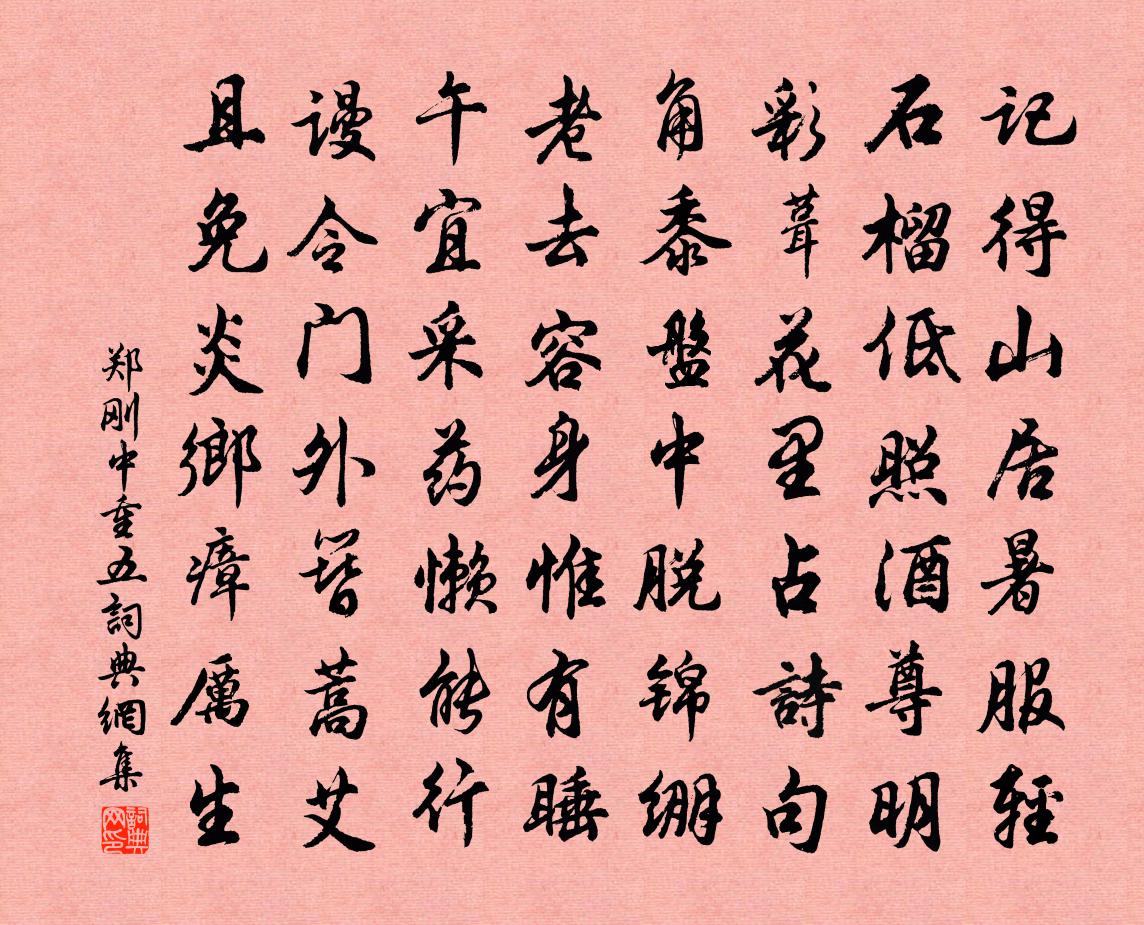 记得山居暑服轻
石榴低照酒尊明
彩葺花里占詩句
角黍盤中脱锦绷
老去容身惟有睡
午宜采药懒能行
谩令门外簪蒿艾
且免炎鄉瘴厲生
郑刚中重五詞典網集
詞典网印